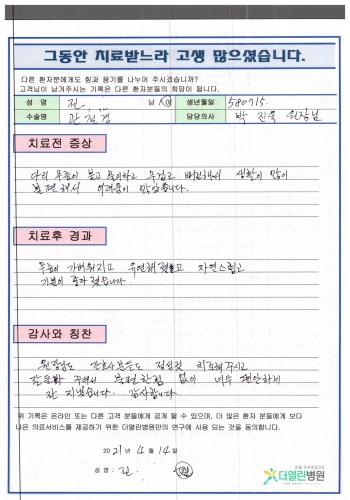 그동안 치료받느라 고생 많으셨습니다.
다른 환자분에게도 힘과 용기를 나누어 주시겠습니까?
고객님이 남겨주시는 기록은 다른 환자분들의 희망이 됩니다.
성 명 전 남 여 생년월일 580715.
수술명 관절경 담당의사 박진욱 원장님
치료전 증상
다리 무릎이 붓고 무겁고 뻐근해서 생활이 많이
불편해서 어려움이 많았습니다.
치료후 경과
무릎이 가벼워지고 유연해졌고 자연스럽고
기분이 좋아졌습니다.
감사와 칭찬
원장님도 간호사분들도 정성껏 치료해주시고
주셔서 불편한점 없이 너무 편안하게
잘 지냈습니다. 감사합니다
위 기록은 온라인 또는 다른 고객 분들에게 공개 될 수 있으며, 더 많은 환자 분들에게 보다
나은 의료서비스를 제공하기 위한 더열린병원만의 연구에 사용 되는 것을 동의합니다.
2021년 4월 14일
성 명 : 전
더열린병원